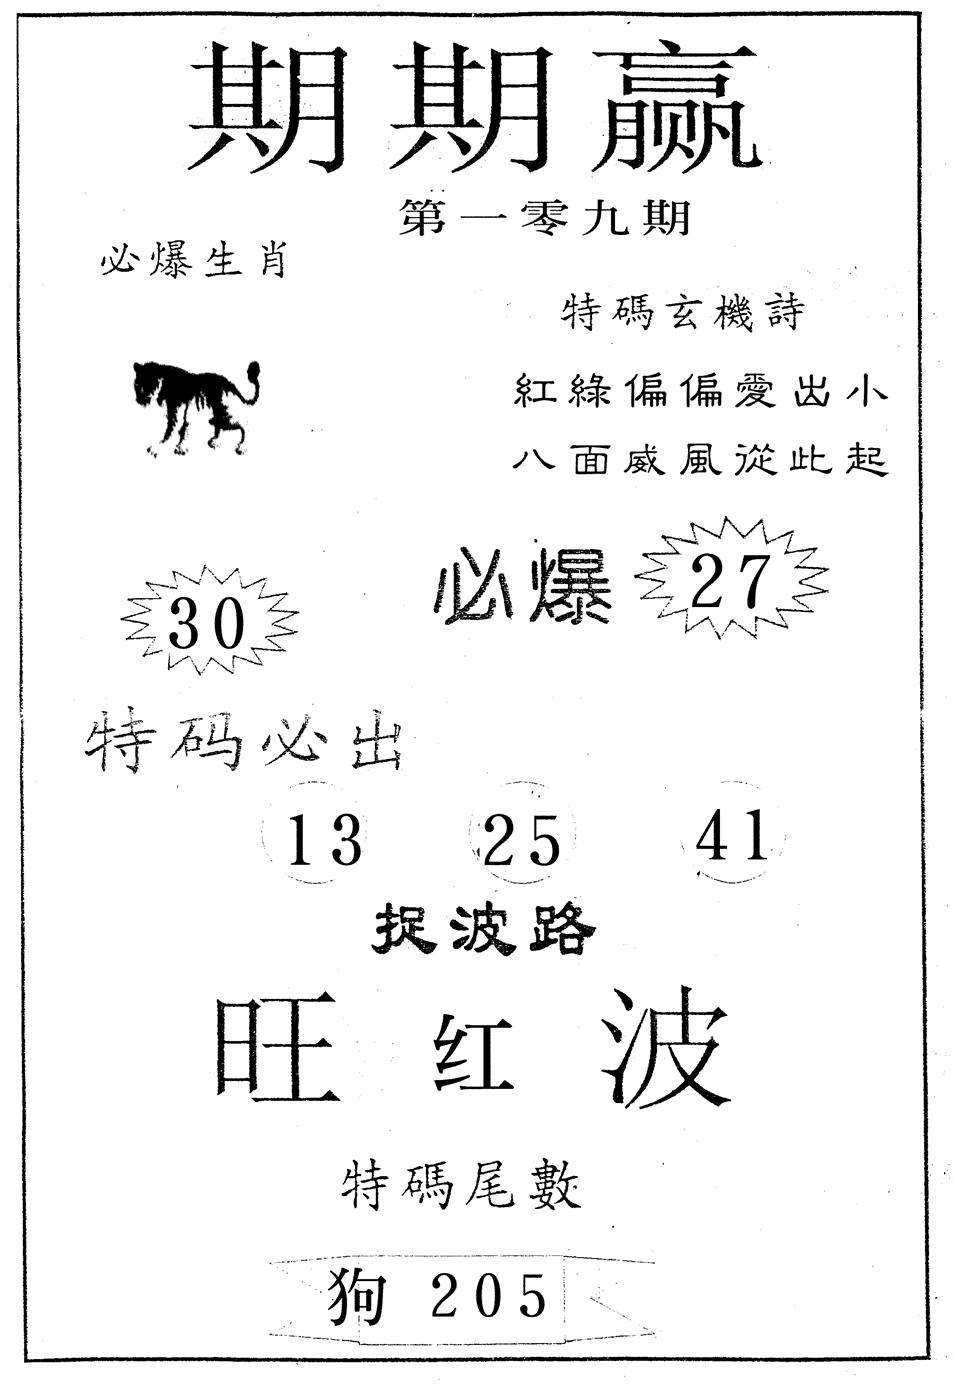 期期赢
第一零九期
必爆生肖
特碼玄機詩
紅綠偏偏愛出小
八面威風從此起
必爆 27
30
特码必出
13 25 41
捉波路
旺红波
特碼尾數
狗 205